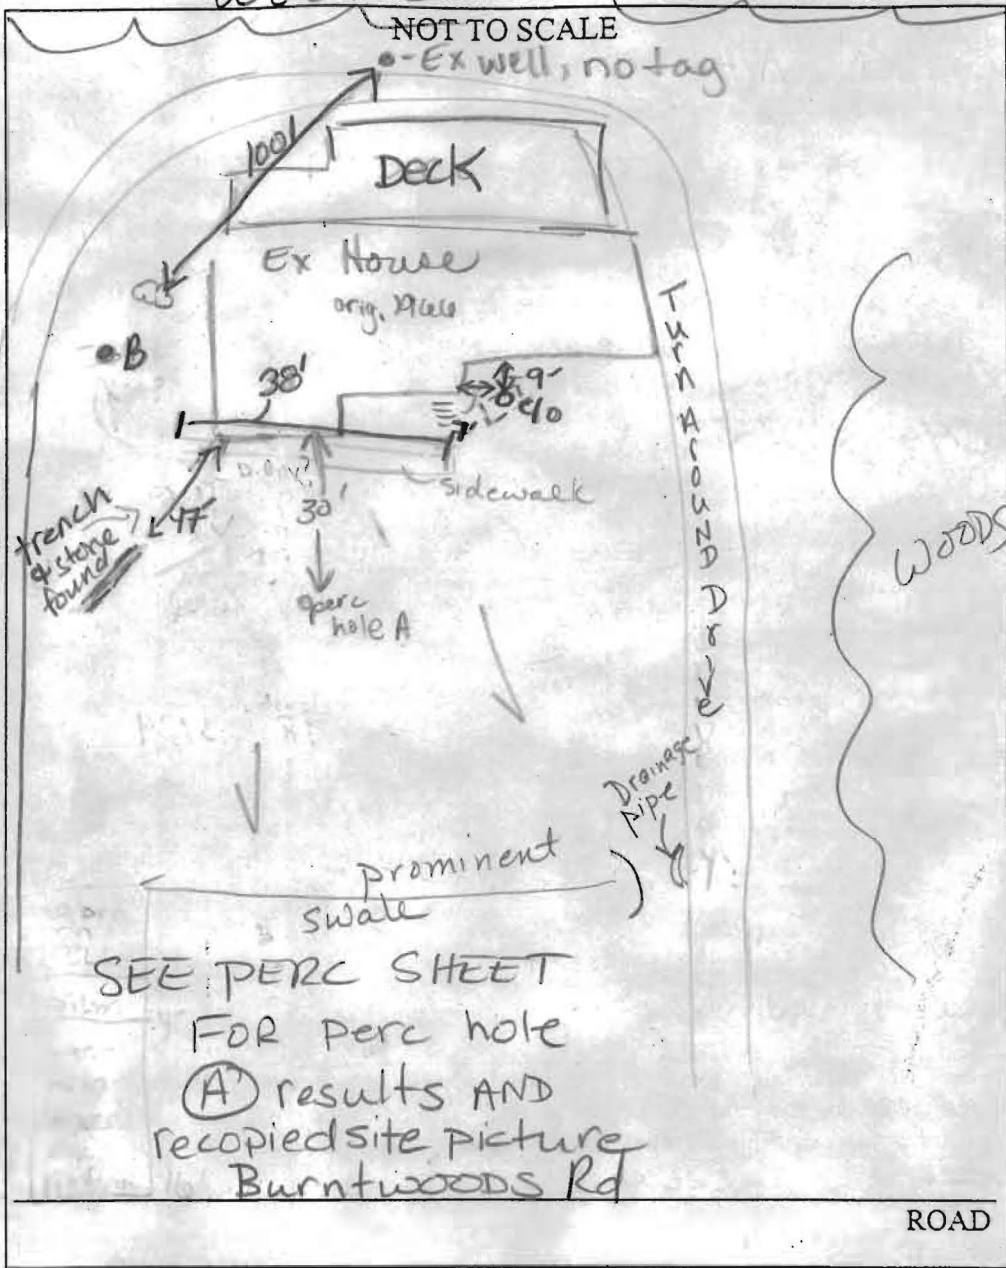 NOT TO SCALE
Ex well, no tag
100'
Deck
Ex House
orig.
B
38'
9'
c/o
sidewalk
47'
30'
trench
& stone
found
perc
hole A
Turn Around Drive
WOODS
Drainage
pipe
prominent
swale
SEE PERC SHEET
FOR perc hole
A results AND
recopied site picture
Burntwoods Rd
ROAD